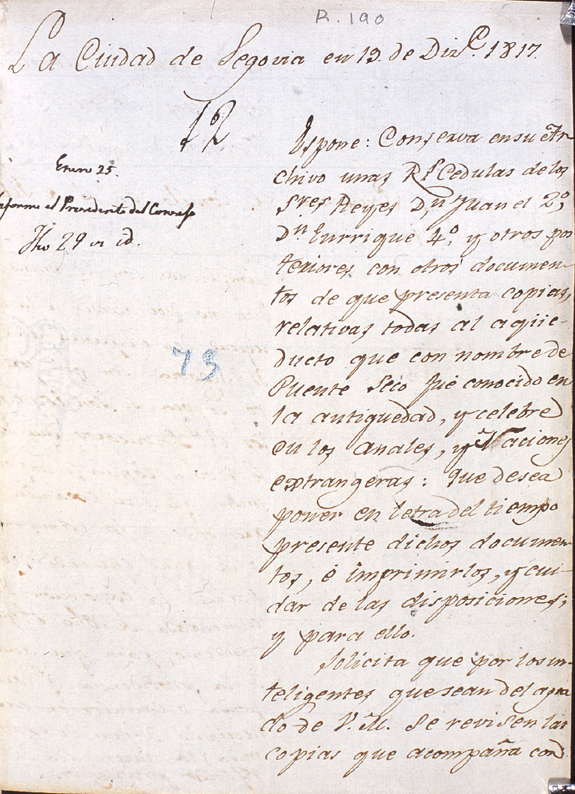 R. 190
La Ciudad de Segovia en 19 de Dizre. 1817.
12
Enero 25.
Informe el Presidente del Consejo
Fho 29 id.
75
Espone: Conserva en su Ar
chivo unas Rs. Cedulas de los
Sres Reyes Dn Juan el 2º.
Dn Enrrique 4º. y otros pos
teriores con otros documen-
tos de que presenta copias,
relativas todas al aqüe-
ducto que con nombre de
Puente Seco fue conocido en
la antiguedad, y celebre
en los anales, y Naciones
extrangeras: Que desea
poner en letra del tiempo
presente dichos documen-
tos, é imprimirlos, y cui-
dar de las disposiciones;
y para ello.
Solicita que por los in-
teligentes que sean del agra
do de V. M. se revisen las
copias que acompaña con